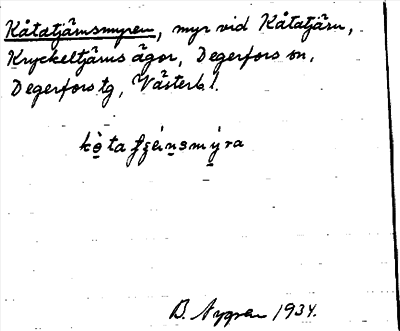 Kåtatjärnsmyren, myr vid Kåtatjärn,
Kryckeltjärns ägor, Degerfors sn,
Degerfors tg, Västerb l.
B. Nygren 1934.